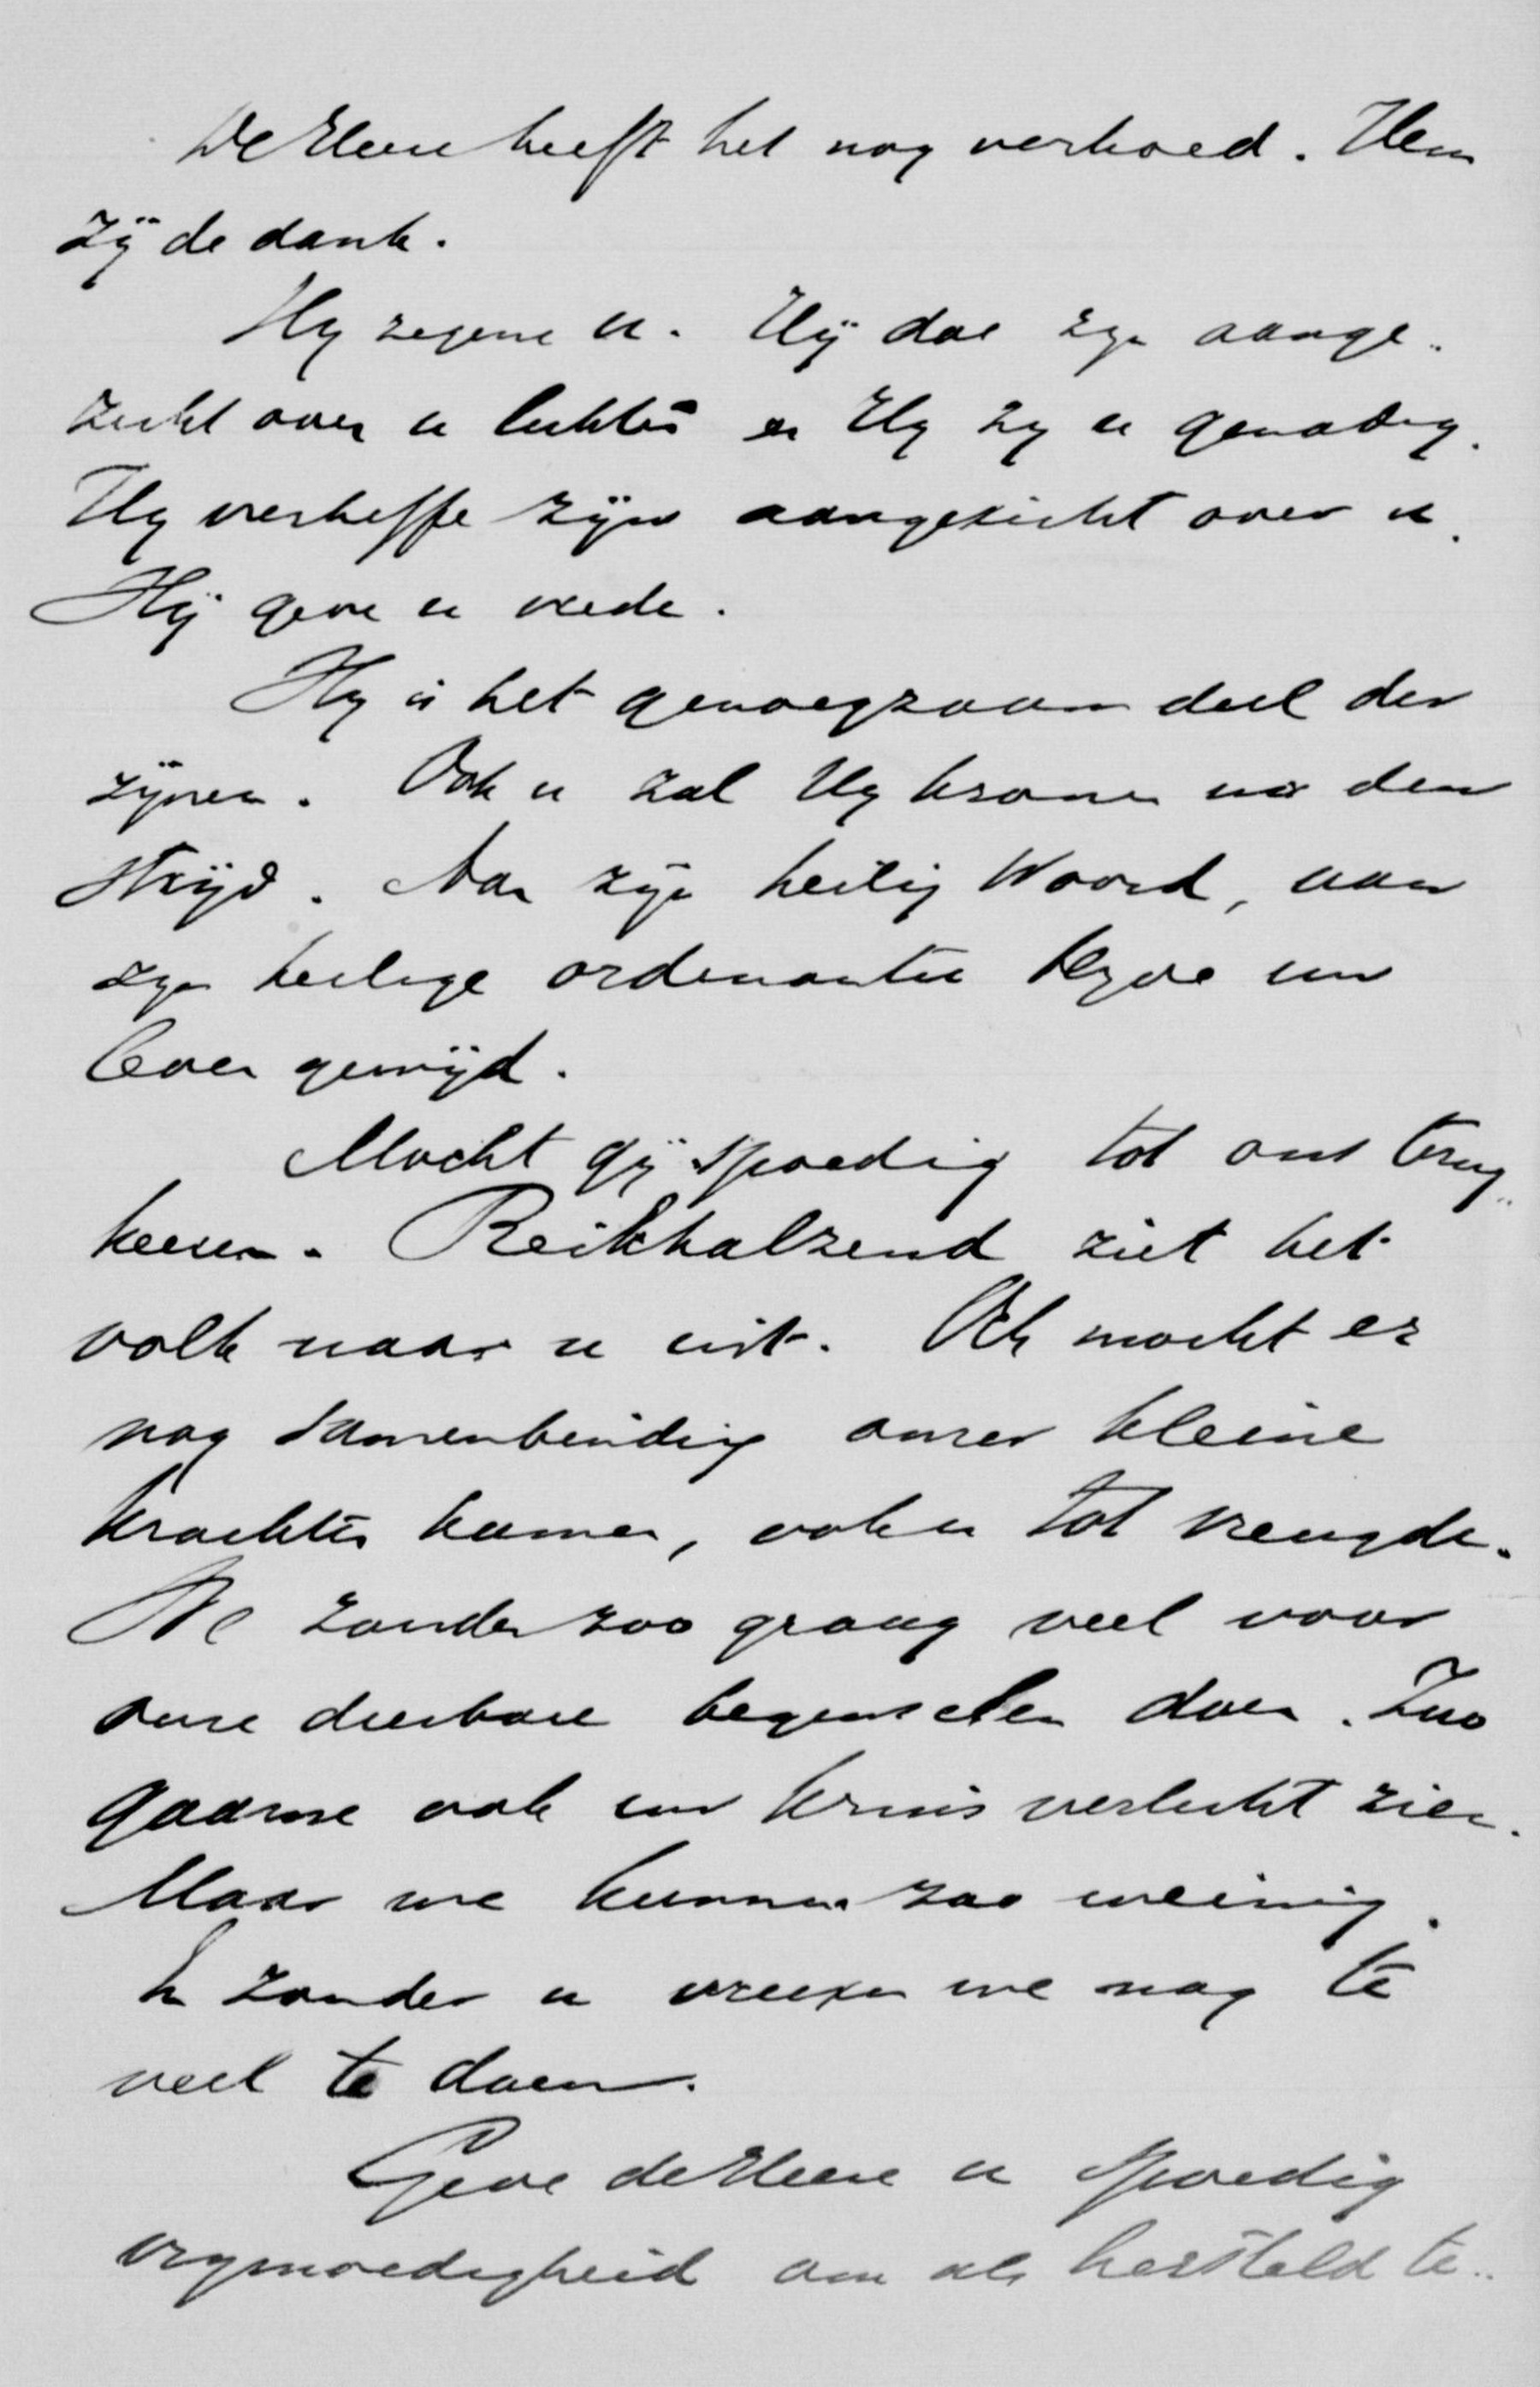 De Heere heeft het nog verhoed. Hem
zij de dank.
Hij zegene u. Hij doe zijn aange-
zicht over u lichten en Hij zij u genadig.
Hij verheffe zijn aangezicht over u.
Hij geve u vrede.
Hij is het genoegzaam deel der
zijnen. Ook u zal Hij kronen na den
strijd. Aan zijn heilig Woord, aan
zijn heilige ordenantiën blijve uw
leven gewijd.
Mocht gij spoedig tot ons terug-
keeren. Reikhalzend ziet het
volk naar u uit. Och mocht er
nog samenbinding onzer kleine
krachten komen, ook u tot vreugde.
We zouden zoo graag veel voor
onze dierbare beginselen doen. Zoo
gaarne ook uw kruis verlicht zien.
Maar we kunnen zoo weinig.
En zonder u vreezen we nog te
veel te doen.
Geve de Heere u spoedig
vrijmoedigheid om als hersteld te-